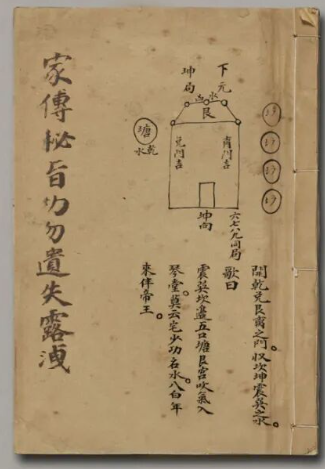 下元
坤局
艮
离門吉
兌門吉
塘
乾水
坤向
六七八九同局
開乾兌艮离之門。収坎坤震巽之水。
歌曰
震巽坎盡五口塘艮宮吹氣入
琴堂。莫云宅少功名水八白年
來伴帝王。
家傳秘旨切勿遺失露洩